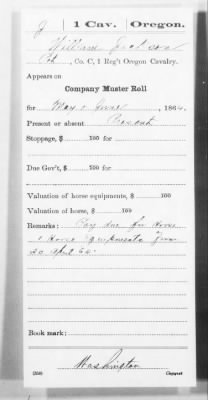 J 1 Cav. Oregon.
William Jackson
Pvt, Co. C, 1 Reg't Oregon Cavalry.
Appears on
Company Muster Roll
for May & June, 1864.
Present or absent Present
Stoppage, $ 100 for
Due Gov't, $ 100 for
Valuation of horse equipments, $ 100
Valuation of horse, $ 100
Remarks: Pay due for Horse
& Horse Equipments from
30 April 64.
Book mark:
Washington
(358) Copyist.